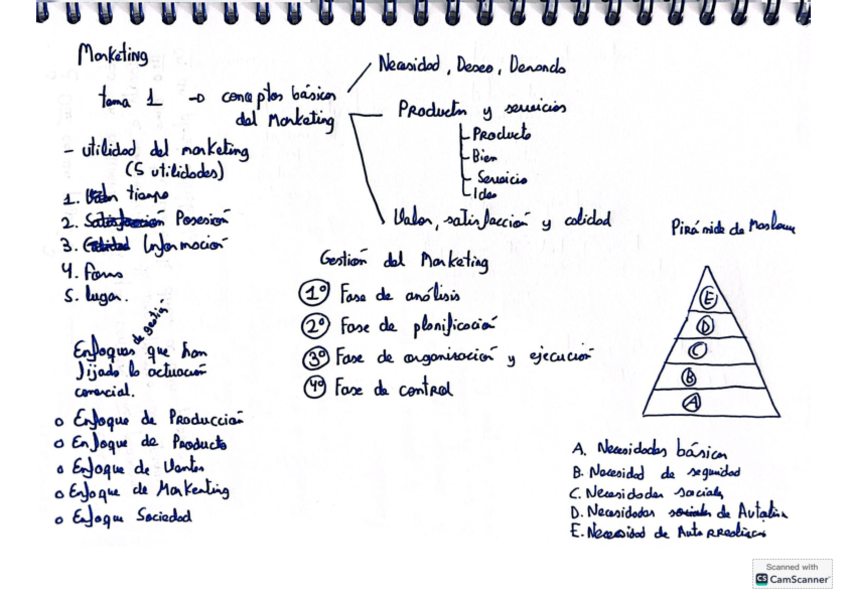 Marketing
tema 1 → conceptos básicos
del Marketing
Necesidad, Deseo, Demanda
Productos y servicios
Producto
Bien
Servicio
Idea
Valor, satisfacción y calidad
- utilidad del marketing
(5 utilidades)
1. tiempo
2. Satisfacción Posesión
3. Calidad Información
4. Forma
5. lugar.
Enfoques de gestión que han
fijado la actuación
comercial.
o Enfoque de Producción
o Enfoque de Producto
o Enfoque de Ventas
o Enfoque de Markenting
o Enfoque Sociedad
Gestión del Marketing
1º Fase de análisis
2º Fase de planificación
3º Fase de organización y ejecución
4º Fase de control
Pirámide de Maslow
E
D
C
B
A
A. Necesidades básicas
B. Necesidad de seguridad
C. Necesidades sociales
D. Necesidades sociales de
E. Necesidad de
Scanned with
CS CamScanner